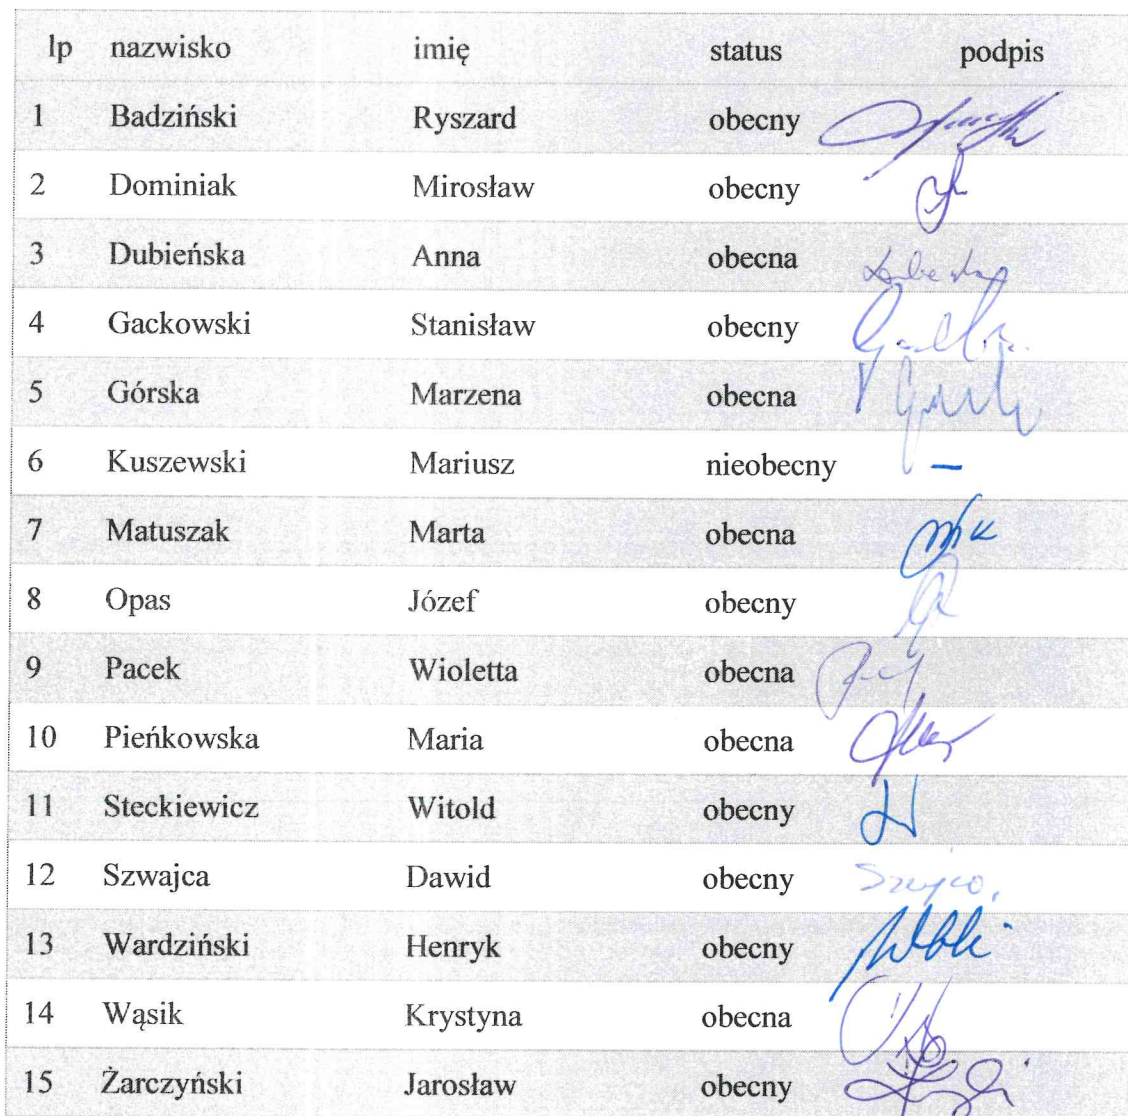 lp nazwisko imię status podpis
1 Badziński Ryszard obecny
2 Dominiak Mirosław obecny
3 Dubieńska Anna obecna
4 Gackowski Stanisław obecny
5 Górska Marzena obecna
6 Kuszewski Mariusz nieobecny –
7 Matuszak Marta obecna
8 Opas Józef obecny
9 Pacek Wioletta obecna
10 Pieńkowska Maria obecna
11 Steckiewicz Witold obecny
12 Szwajca Dawid obecny
13 Wardziński Henryk obecny
14 Wąsik Krystyna obecna
15 Żarczyński Jarosław obecny